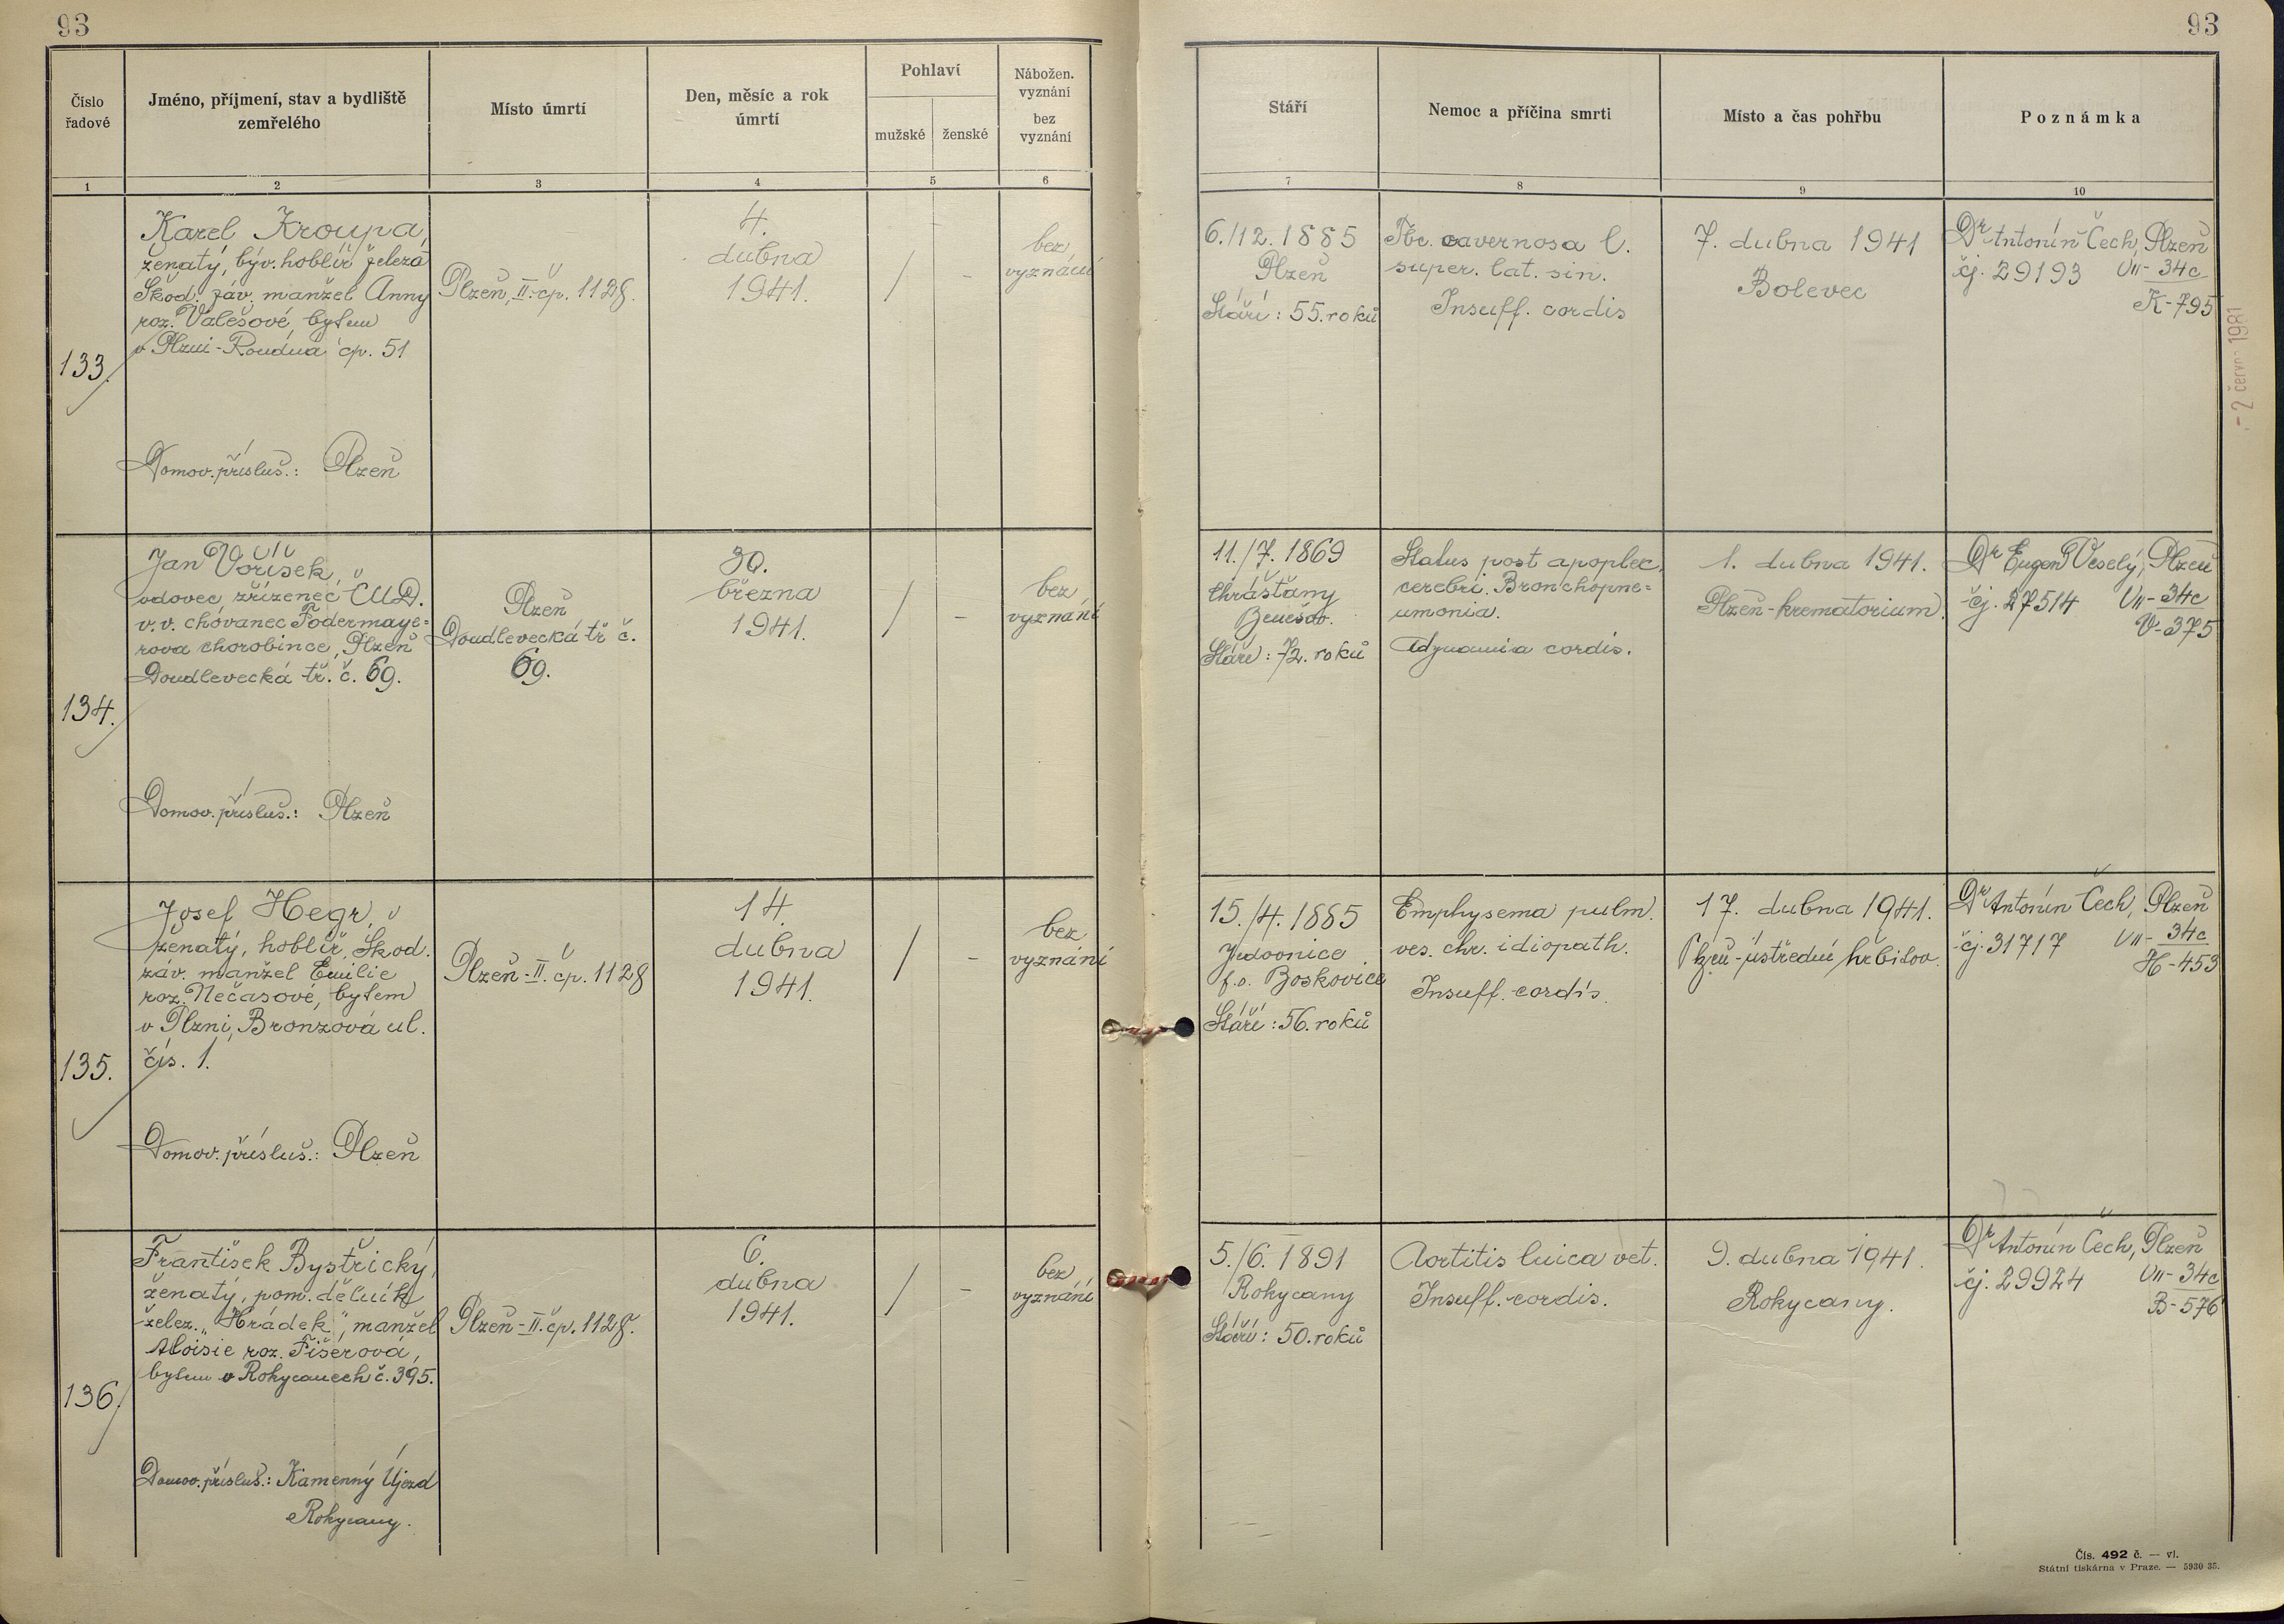 93
93
Číslo řadové
Jméno, příjmení, stav a bydliště zemřelého
Místo úmrtí
Den, měsíc a rok úmrtí
Pohlaví
mužské
ženské
Nábožen. vyznání
bez vyznání
Stáří
Nemoc a příčina smrti
Místo a čas pohřbu
Poznámka
1
2
3
4
5
6
7
8
9
10
133.
Karel Kroupa,
ženatý, býv. hoblíř železa
Škod. záv. manžel Anny
roz. Valešové, bytem
v Plzni-Roudná čp. 51
Domov. přísluš.: Plzeň
Plzeň, II. čp. 1128.
4.
dubna
1941.
/
-
bez
vyznání
6./12. 1885
Plzeň
Stáří: 55. roků
Tbc. cavernosa l.
super. lat. sin.
Insuff. cordis
7. dubna 1941
Bolevec
Dr Antonín Čech, Plzeň
čj. 29193 VII-34c
K-795
- 2 červ 1981
134.
Jan Voříšek,
vdovec, zřízenec ČMD.
v. v. chovanec Fodermaye=
rova chorobince, Plzeň
Doudlevecká tř. č. 69.
Domov. přísluš.: Plzeň
Plzeň
Doudlevecká tř č.
69.
30.
března
1941.
/
-
bez
vyznání
11./7. 1869
Chrášťany
Benešov.
Stáří: 72. roků
Status post apoplec.
cerebri. Bronchopne=
umonia.
Adynamia cordis.
1. dubna 1941.
Plzeň-krematorium.
Dr Eugen Veselý, Plzeň
čj. 27514 VII-34c
V-375
135.
Josef Hegr,
ženatý, hoblíř, Škod.
záv. manžel Emilie
roz. Nečasové, bytem
v Plzni, Bronzová ul.
čís. 1.
Domov. přísluš.: Plzeň
Plzeň-II. čp. 1128
14.
dubna
1941.
/
-
bez
vyznání
15./4. 1885
Jedovnice
f.o. Boskovice
Stáří: 56. roků
Emphysema pulm.
ves. chr. idiopath.
Insuff. cordis.
17. dubna 1941.
Plzeň-ústřední hřbitov.
Dr Antonín Čech, Plzeň
čj. 31717 VII-34c
H-453
136.
František Bystřický,
ženatý, pom. dělník
želez. "Hrádek", manžel
Aloisie roz. Fišerová,
bytem v Rokycanech č. 395.
Domov. přísluš.: Kamenný Újezd
Rokycany.
Plzeň-II. čp. 1128.
6.
dubna
1941.
/
-
bez
vyznání
5./6. 1891
Rokycany
Stáří: 50. roků
Aortitis luica vet.
Insuff. cordis.
9. dubna 1941.
Rokycany.
Dr Antonín Čech, Plzeň
čj. 29924 VII-34c
B-576
Čís. 492 č. — vl.
Státní tiskárna v Praze. — 5930 35.